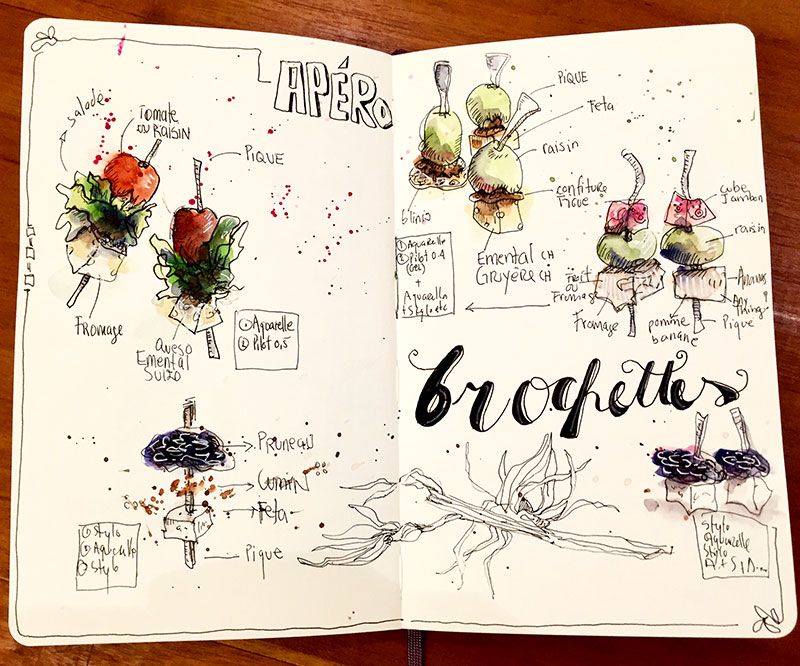 APÉRO
Salade
TOMATE
OU RAISIN
PIQUE
FROMAGE
QUESO
EMENTAL
SUIZO
① Aquarelle
② Pilot 0,5
PRUNEAU
CUMIN
FETA
Pique
① Stylo
② Aquarelle
③ Stylo
PIQUE
Feta
raisin
confiture
Figue
blinis
① Aquarelle
② Pilot 0.4
(GEL)
+
Aquarelle
+ Stylo etc
Emental CH
GRUYÈRE CH
cube
Jambon
raisin
Fruit
ou
Fromage
Fromage
pomme
banane
Ananas
Pique
brochettes
Stylo
Aquarelle
Stylo
A + S + A...